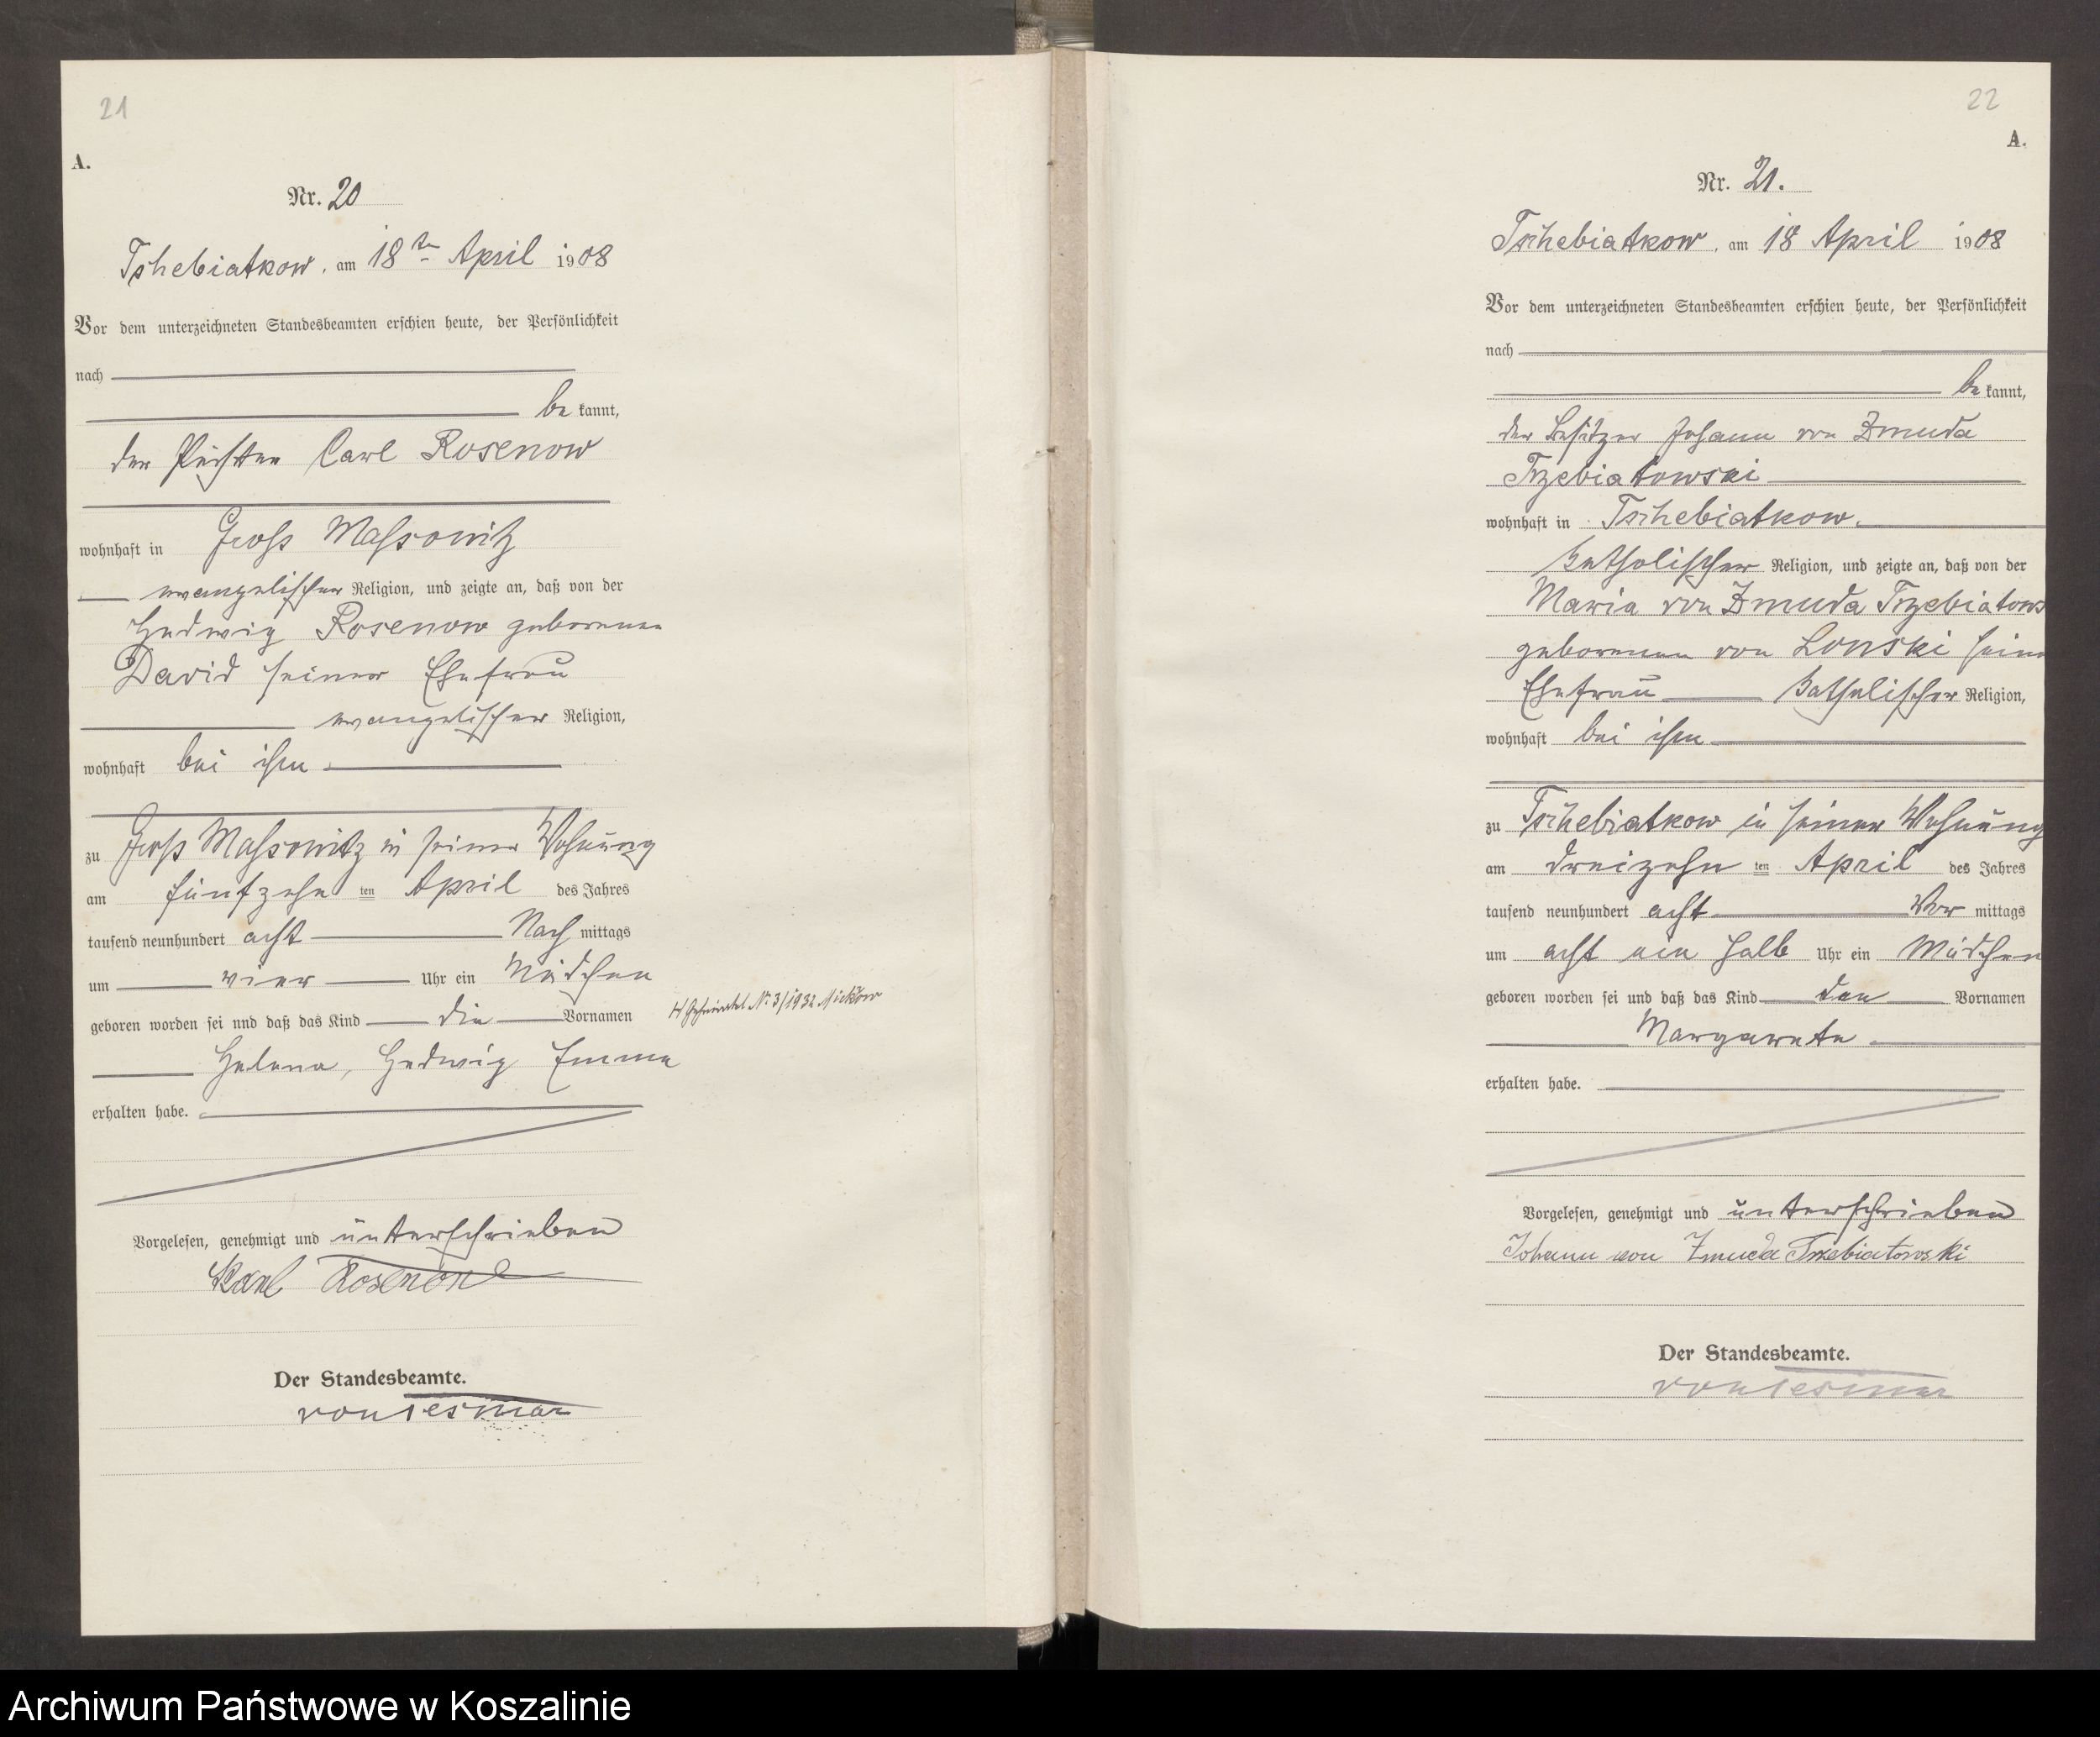 21
A.
Nr. 20
Tshebiatkow, am 18ten April 1908
Vor dem unterzeichneten Standesbeamten erschien heute, der Persönlichkeit
nach
be kannt,
der Carl Rosenow
wohnhaft in Gross Massowitz
evangelischer Religion, und zeigte an, daß von der
Hedwig Rosenow geborenen
David seiner Ehefrau
evangelischer Religion,
wohnhaft bei ihm
zu Gross Massowitz in seiner Wohnung
am fünfzehn ten April des Jahres
tausend neunhundert acht Nach mittags
um vier Uhr ein Mädchen
geboren worden sei und daß das Kind die Vornamen
H Geheiratet Nr. 3/1932
Helene, Hedwig Emma
erhalten habe.
Vorgelesen, genehmigt und unterschrieben
Karl Rosenow
Der Standesbeamte.
von Tesmar
22
A.
Nr. 21.
Tschebiatkow, am 18 April 1908
Vor dem unterzeichneten Standesbeamten erschien heute, der Persönlichkeit
nach
be kannt,
der Besitzer Johann von Zmuda
Trzebiatowski
wohnhaft in Tschebiatkow.
katholischer Religion, und zeigte an, daß von der
Maria von Zmuda Trzebiatows
geborenen von Lonski seine
Ehefrau katholischer Religion,
wohnhaft bei ihm
zu Tschebiatkow in seiner Wohnung
am dreizehn ten April des Jahres
tausend neunhundert acht Vor mittags
um acht ein halb Uhr ein Mädchen
geboren worden sei und daß das Kind den Vornamen
Margarete
erhalten habe.
Vorgelesen, genehmigt und unterschrieben
Johann von Zmuda Trzebiatowski
Der Standesbeamte.
von Tesmar
Archiwum Państwowe w Koszalinie